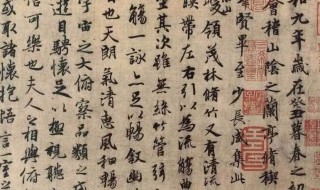 和九年歲在癸丑暮春之初
會稽山陰之蘭亭脩稧
賢畢至少長咸集此
峻領茂林脩竹又有清流
暎帶左右引以為流觴曲
坐其次雖無絲竹管弦
觴一詠亦足以暢敘幽
也天朗氣清惠風和暢
宇宙之大俯察品類之盛
遊目騁懷足以極視聽
信可樂也夫人之相與俯
或取諸懷抱悟言一室之